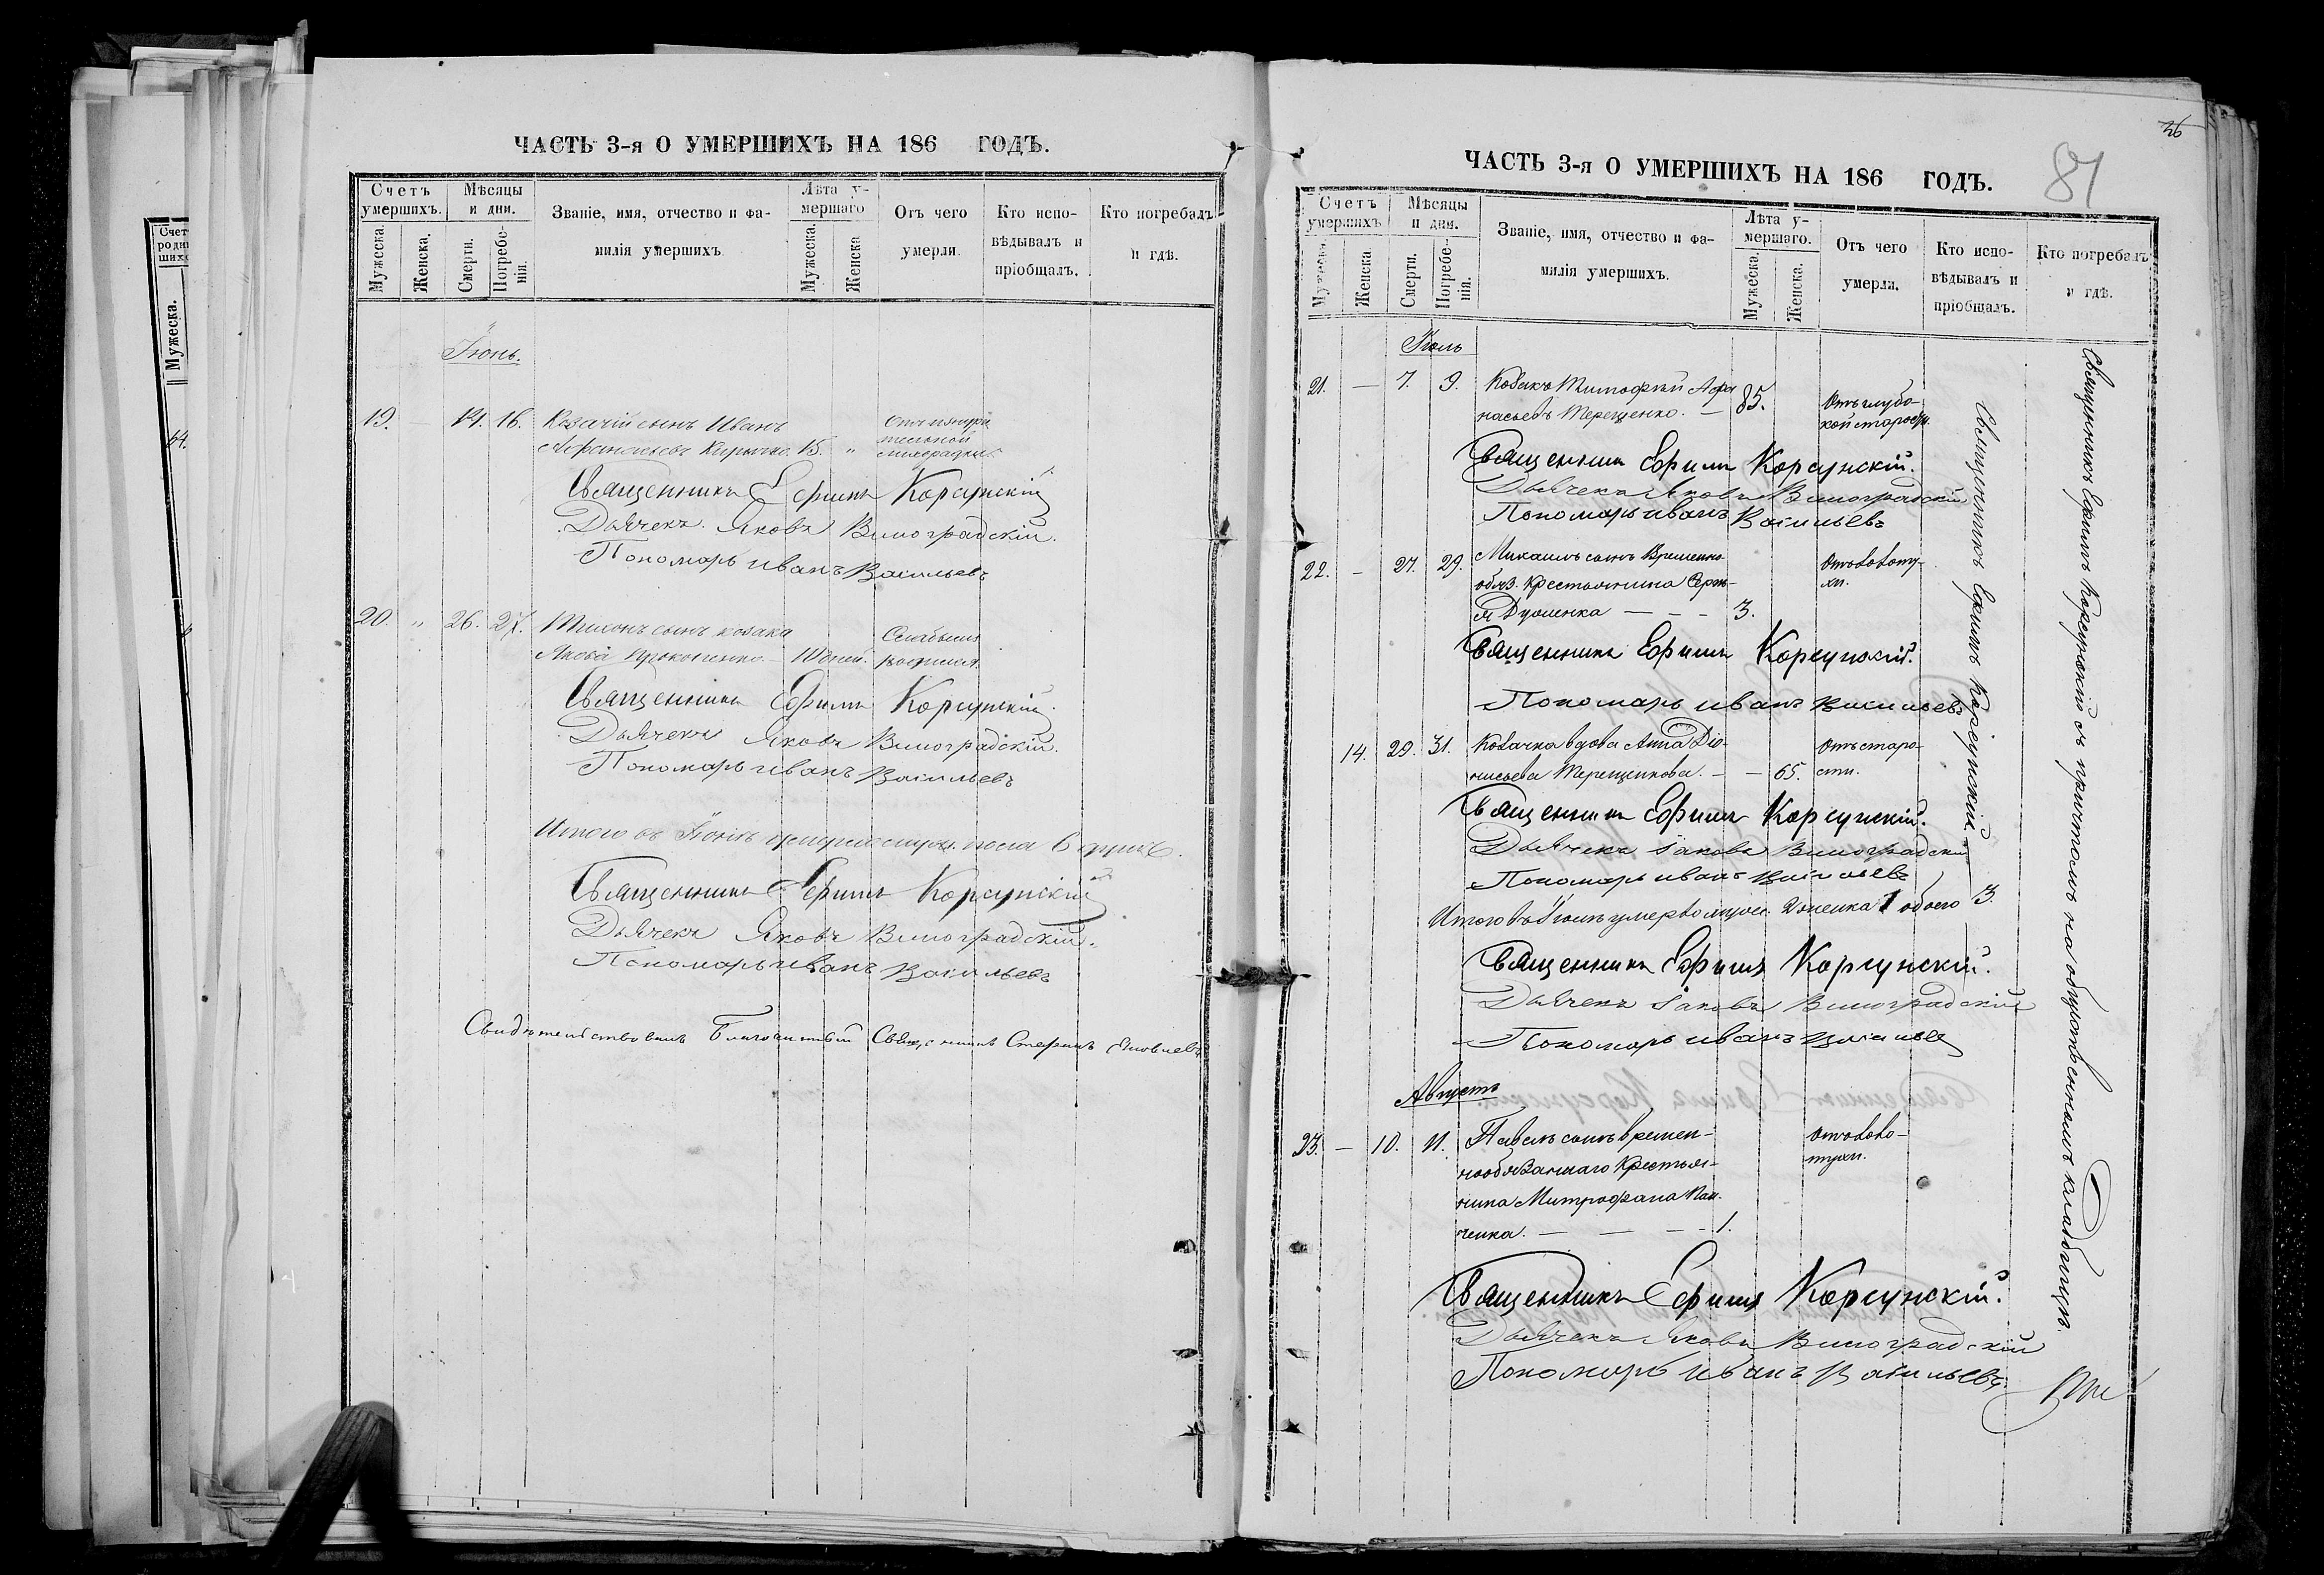 Счет
роди
ших
Мужеска.
64.
ЧАСТЬ 3-я О УМЕРШИХЪ НА 186 ГОДЪ.
Счетъ умершихъ.
Мужеска.
Женска.
Мѣсяцы и дни.
Смерти.
Погребе-
нія.
Званіе, имя, отчество и фа-
милія умершихъ
Лѣта у-
мершаго
Мужеска.
Женска
Отъ чего
умерли.
Кто испо-
вѣдывалъ и
пріобщалъ.
Кто погребалъ
и гдѣ.
Іюнь.
19. 14. 16. Козачій сынъ Иванъ
Афанасіевъ 15. "
Священникъ Ефимъ Корсунскій
Дьячекъ Яковъ Виноградскій.
Пономарь Иванъ Васильевъ
20. " 26. 27. Тихонъ сынъ козака
Якова Прокопенко
Священникъ Ефимъ Корсунскій.
Дьячекъ Яковъ Виноградскій.
Пономарь Иванъ Васильевъ
Итого въ Іюнѣ 6 душъ.
Священникъ Ефимъ Корсунскій
Дьячекъ Яковъ Виноградскій.
Пономарь Иванъ Васильевъ
Свидѣтельствовалъ Благочинный Священникъ Стефанъ Яковлевъ
36
81
ЧАСТЬ 3-я О УМЕРШИХЪ НА 186 ГОДЪ.
Счетъ
умершихъ
Мужеска.
Женска
Мѣсяцы
и дни.
Смерти.
Погребе-
нія.
Званіе, имя, отчество и фа-
милія умершихъ.
Лѣта у-
мершаго.
Мужеска.
Женска.
Отъ чего
умерли.
Кто испо-
вѣдывалъ и
пріобщалъ.
Кто погребалъ
и гдѣ.
Іюль
21. — 7. 9. Козакъ Тимофей Афа
насьевъ Терещенко. — 85. Отъ глубо-
кой старости.
Священникъ Ефимъ Корсунскій.
Дьячекъ Яковъ Виноградскій
Пономарь Иванъ Васильевъ
22. — 27. 29. Михаилъ сынъ Временно
обяз. Крестьянина Серге-
я — — — 3.
Священникъ Ефимъ Корсунскій.
Пономарь Иванъ Васильевъ
14. 29. 31. Козачка вдова Анна Діо-
нисьева Терещенкова. — — 65. Отъ старо-
сти.
Священникъ Ефимъ Корсунскій.
Дьячекъ Іаковъ Виноградскій
Пономарь Иванъ Васильевъ
Итого въ Іюлѣ умерло муж. 2 женска 1 обоего 3.
Священникъ Ефимъ Корсунскій.
Дьячекъ Іаковъ Виноградскій
Пономарь Иванъ Васильевъ
Августъ
23. — 10. 11. Павелъ сынъ времен-
нообязаннаго Крестья-
нина Митрофана Пан-
ченка. — — — 1.
Священникъ Ефимъ Корсунскій.
Дьячекъ Яковъ Виноградскій
Пономарь Иванъ Васильевъ
Священникъ Ефимъ Корсунскій.
Священникъ Ефимъ Корсунскій съ причтомъ на общественномъ кладбищѣ.